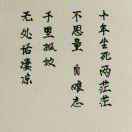 十年生死两茫茫
不思量 自难忘
千里孤坟
无处话凄凉